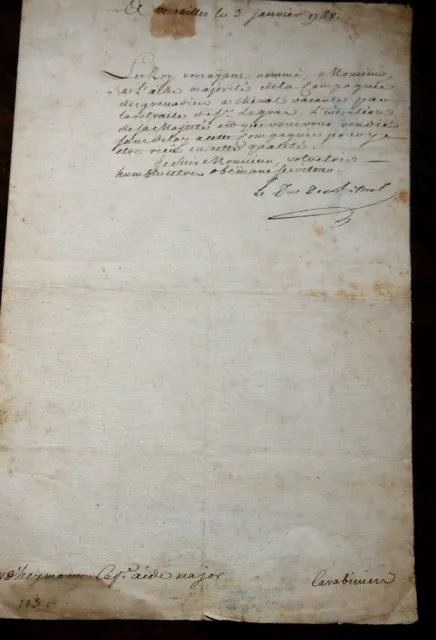 A Versailles le 3 janvier 1768.
Le Roy vous ayant nommé, Monsieur,
a L'aide majorité de la Compagnie
des grenadiers a cheval vacante par
la retraite de Sr. Legras L'intention
de Sa Majesté est que vous vous rendiés
a cette Compagnie pour y
etre recû en cette qualité.
Je suis Monsieur, votre tres
humble et tres obeissant serviteur.
Le Duc De
Dheymann Capne. aide major
Carabiniers
113